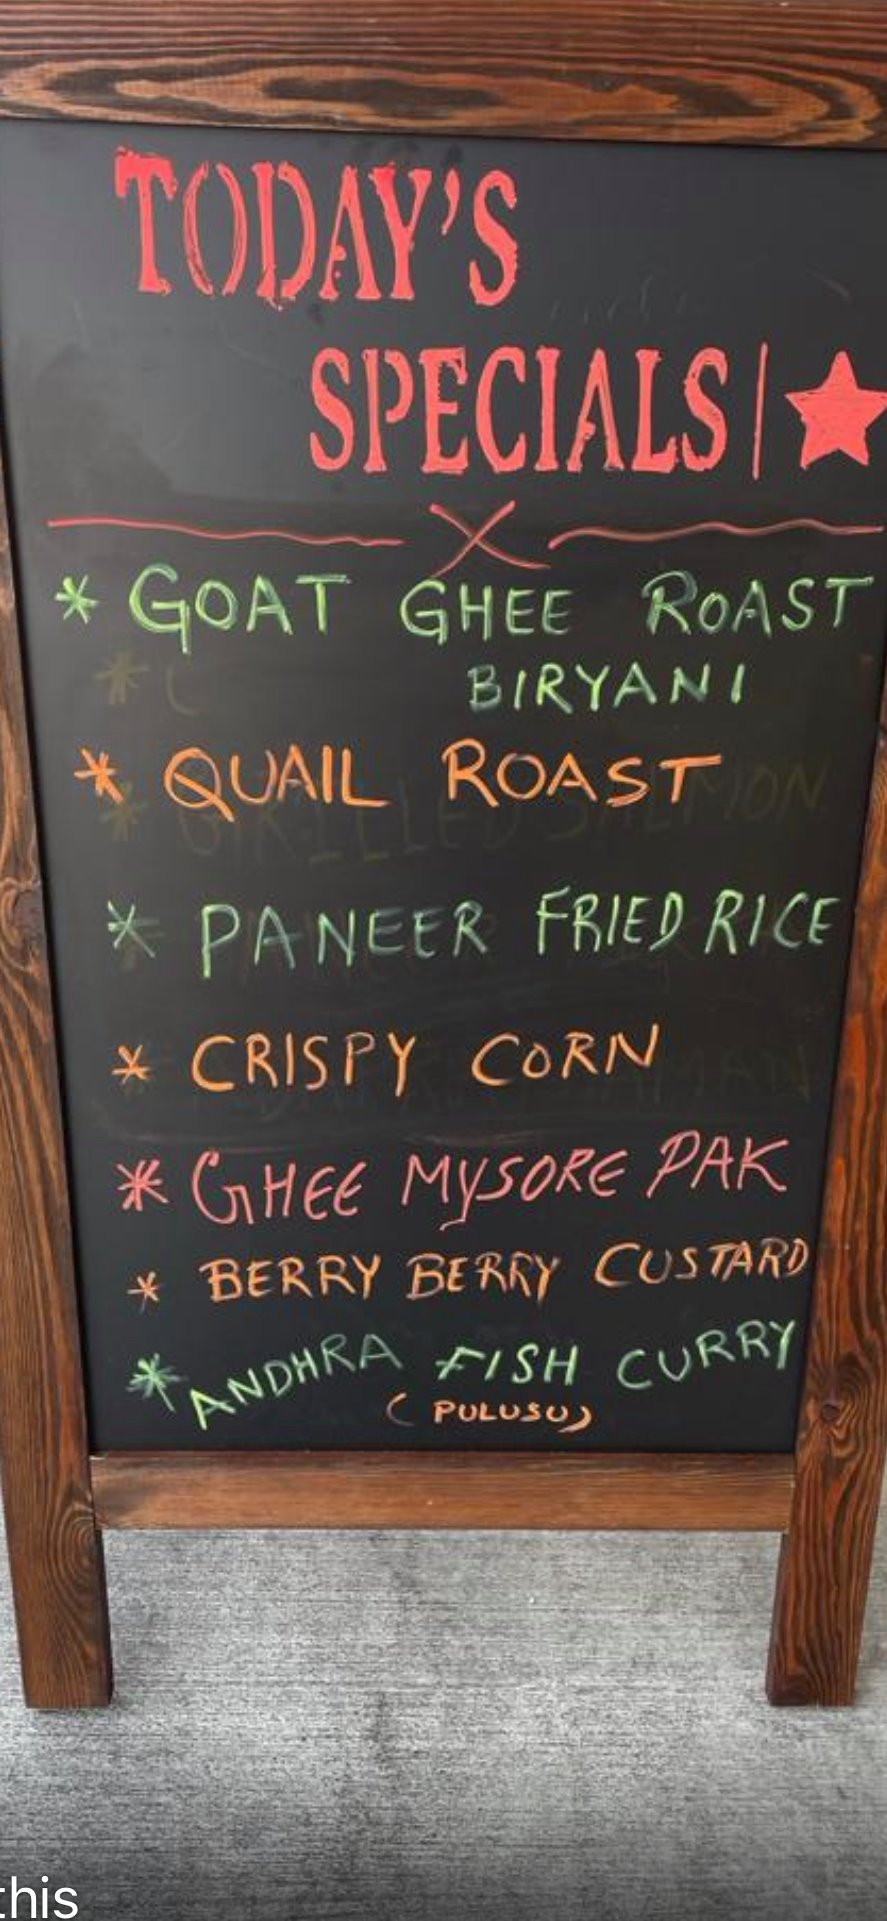 TODAY'S
SPECIALS | ★
* GOAT GHEE ROAST
BIRYANI
* QUAIL ROAST
GRILLED SALMON
* PANEER FRIED RICE
* CRISPY CORN
* GHEE MYSORE PAK
* BERRY BERRY CUSTARD
* ANDHRA FISH CURRY
( PULUSU )
this